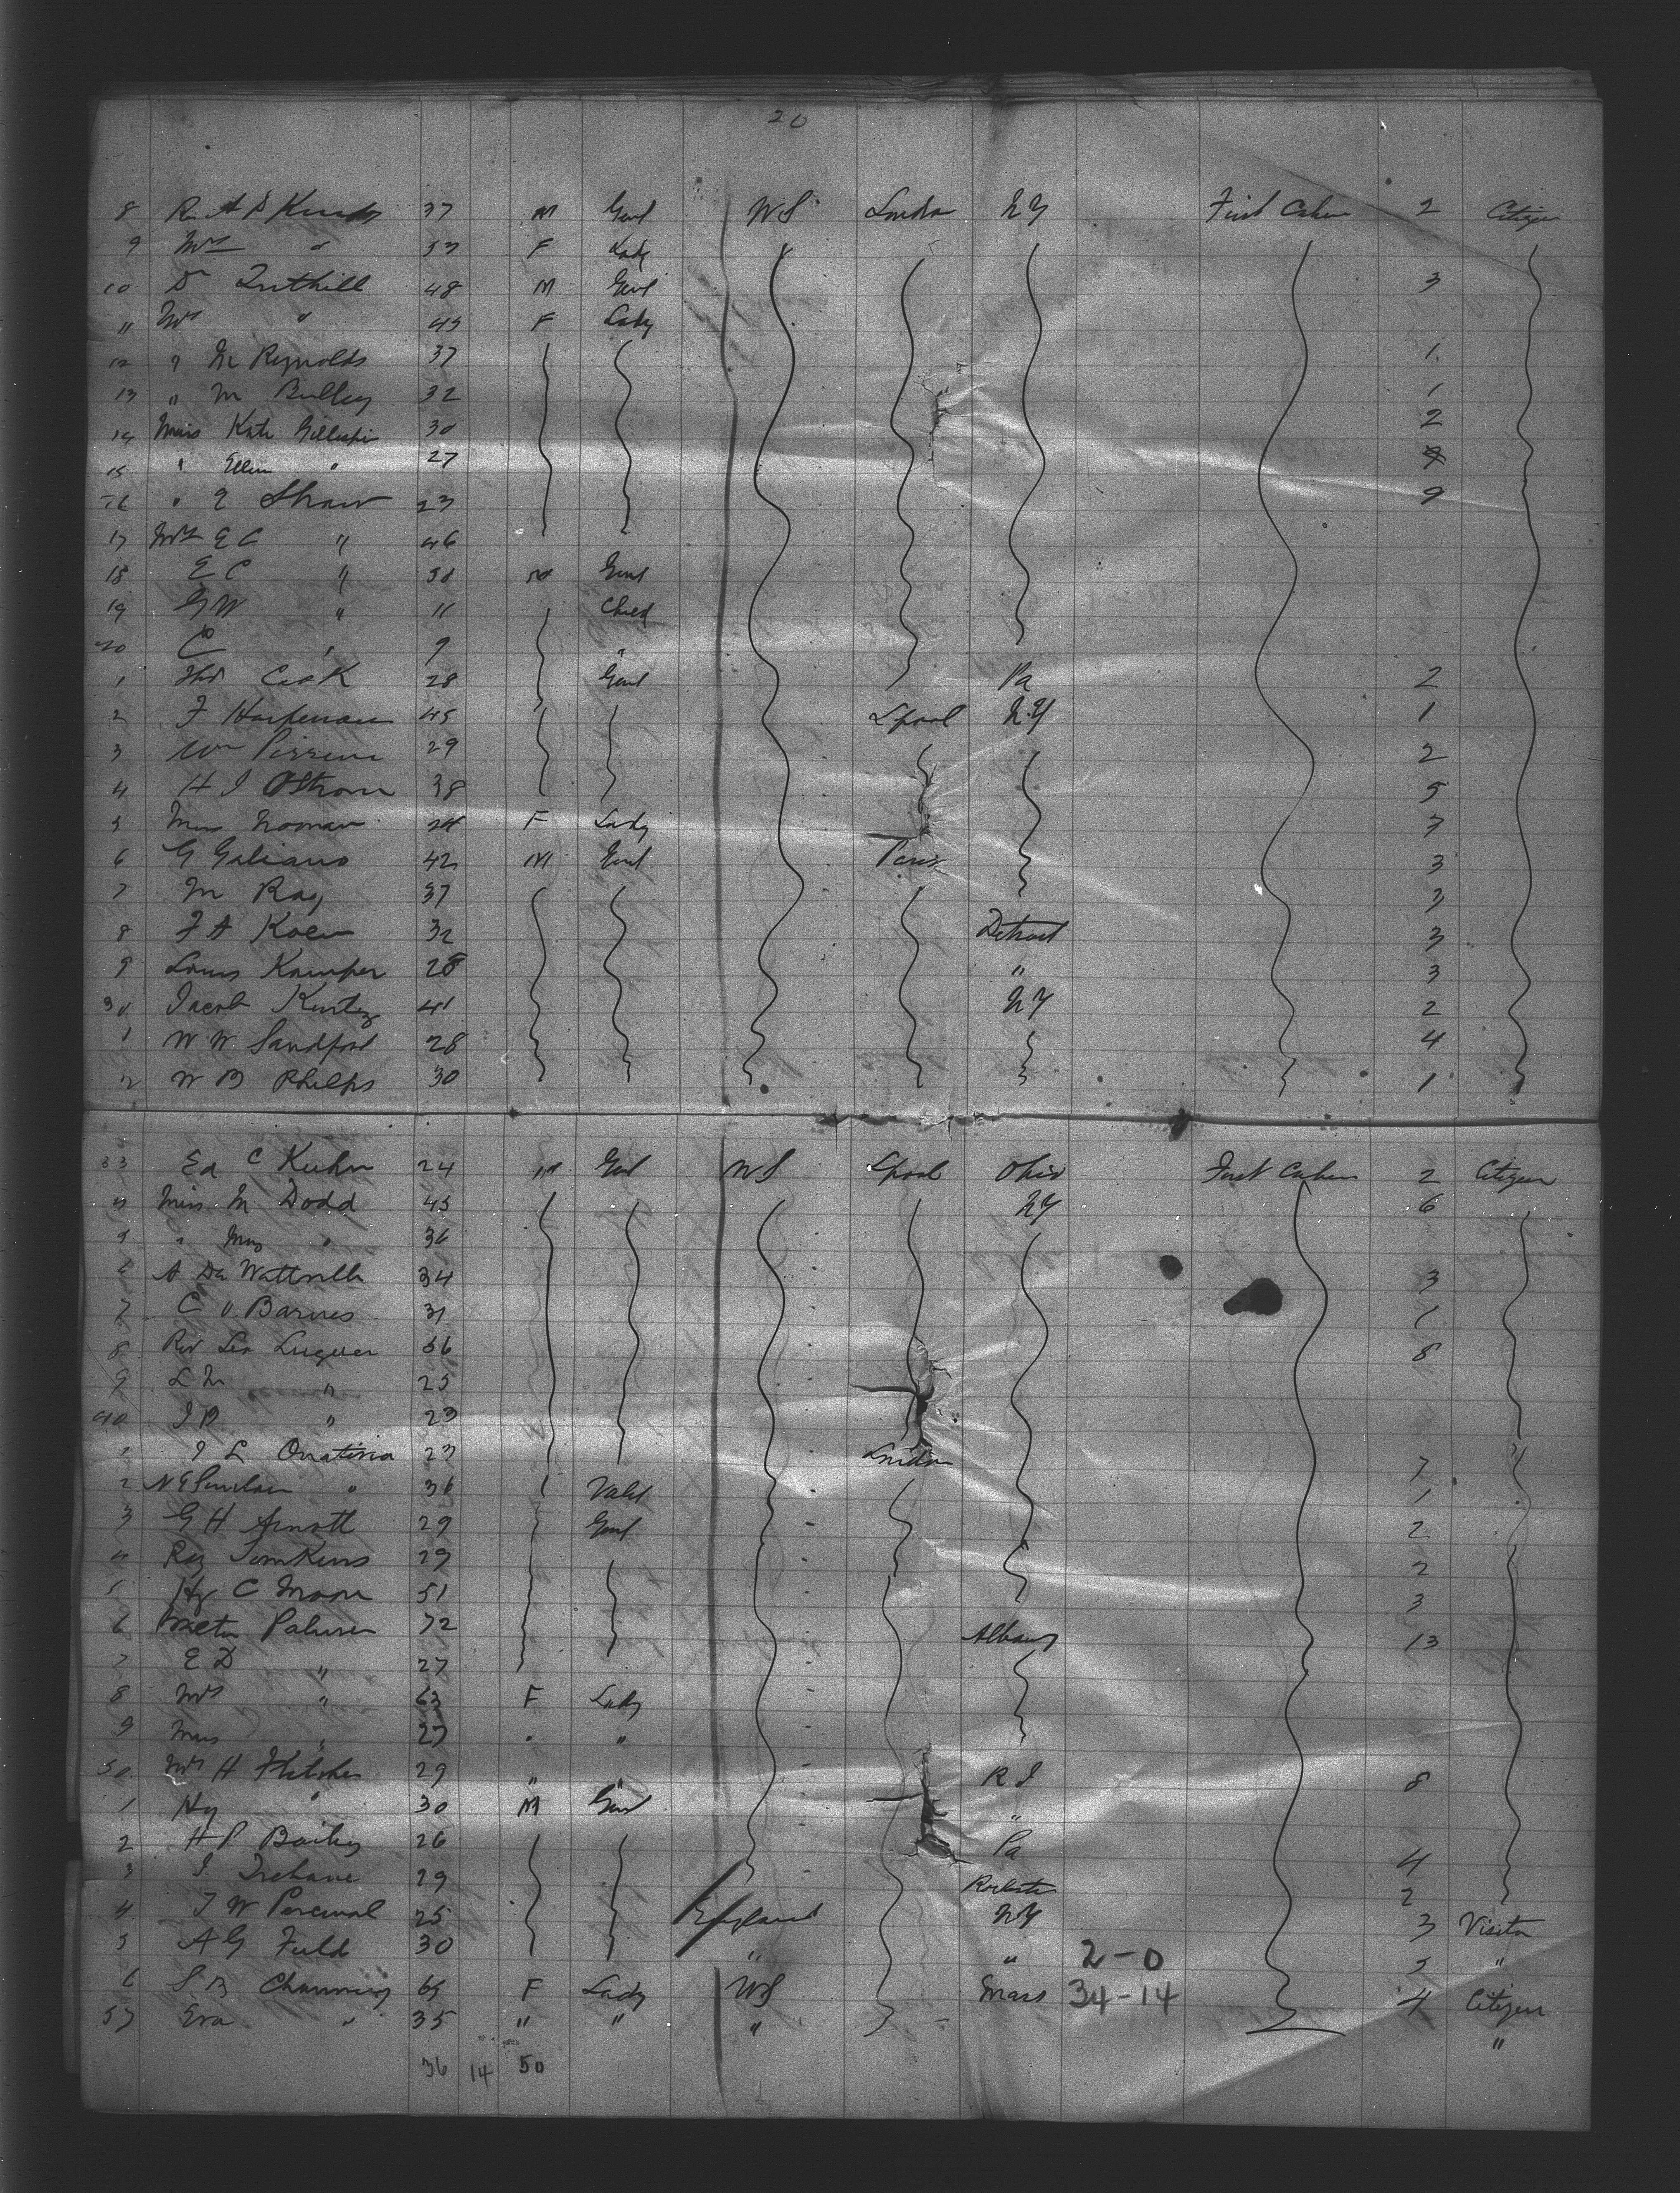 20
8 R. A. D 37 M Gent U S London N Y First Cabin 2 Citizen
9 Mrs " 33 F Lady
10 Dr Tuthill 48 M Gent 3
11 Mrs " 45 F Lady
12 " M Reynolds 37 1
13 " M 32 1
14 Miss Kate Gillespie 30 2
15 " Ellen " 27
16 " E Shaw 23 9
17 Mrs E C " 46
18 E C " 50 M Gent
19 G W " 11 Child
20 C " 9 "
1 Thos Cook 28 Gent Pa 2
2 F 45 Lpool N.Y 1
3 Wm 29 2
4 H J Ostrom 38 5
5 Miss Noonan 24 F Lady 7
6 G Galiano 42 M Gent Paris 3
7 M Ray 37 3
8 F A 32 Detroit 3
9 Louis Kamper 28 " 3
30 Jacob Kuntz 41 N Y 2
1 W W Sandford 28 4
2 W B Phelps 30 1
33 Ed C Kuhn 24 M Gent U S Lpool Ohio First Cabin 2 Citizen
4 Miss M Dodd 45 N Y 6
5 " May " 36
6 A De Wattville 34 3
7 C O Barnes 31 1
8 Rev Lea Luquer 56 8
9 L M " 25
40 " 23
1 J L Onativia 23 London 7
2 " 36 Valet 1
3 G H Arnott 29 Gent 2
4 Ray Tomkins 29 2
5 Hy C Moore 51 3
6 Palmer 72 Albany 13
7 E D " 27
8 Mrs " 63 F Lady
9 Miss " 27 " "
50 Mrs H Fletcher 29 " " R I 8
1 Hy " 30 M Gent "
2 H P Bailey 26 Pa 4
3 J. Trehane 29 Rochester 2
4 J W Percival 25 England N Y 3 Visitor
5 A G Fuld 30 " " 2-0 5 "
6 S. B Channing 65 F Lady U S Mass 34-14 4 Citizen
57 Eva " 35 " " " "
36 14 50